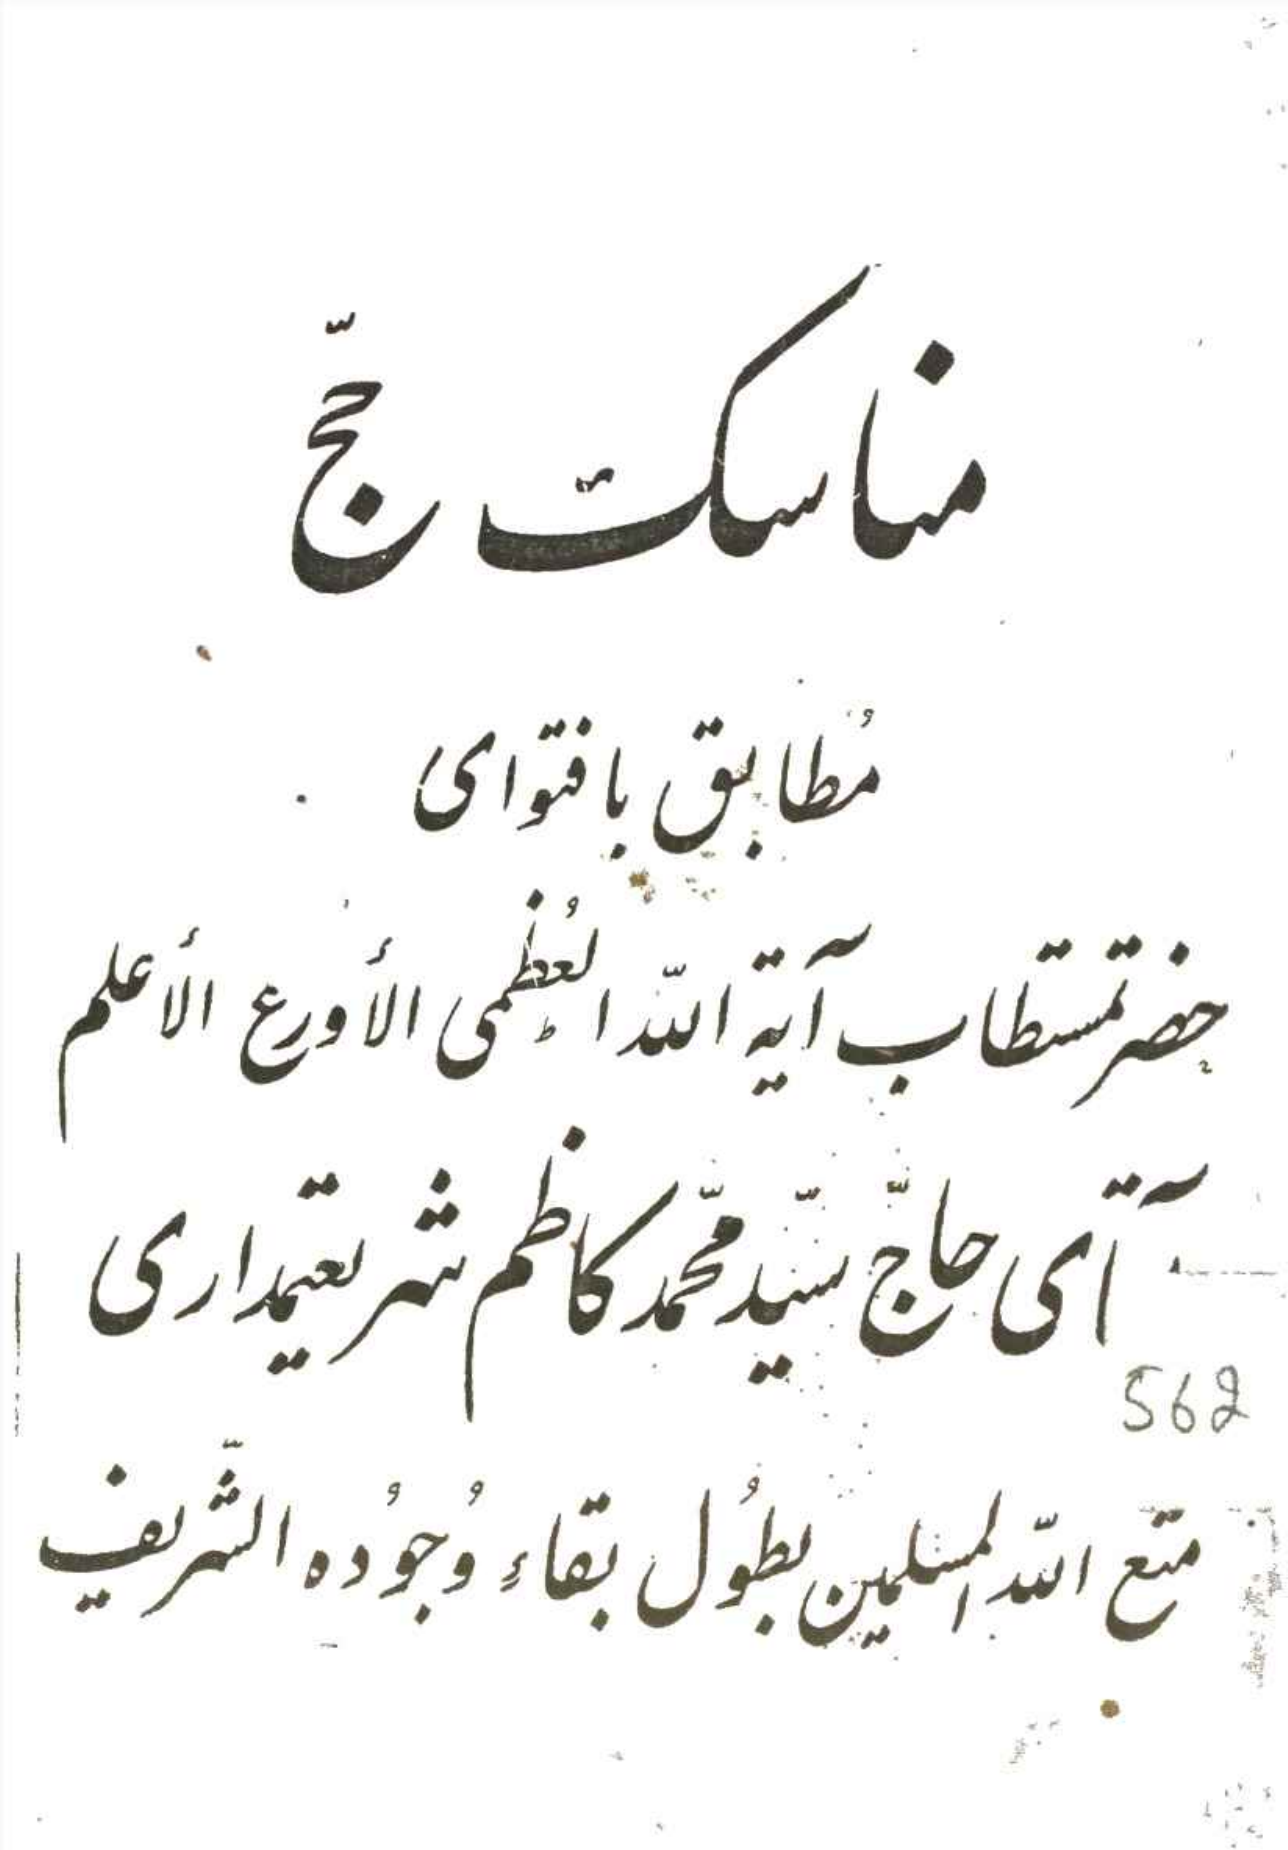 مناسک حجّ
مُطابق با فتوای
حضرتمستطاب آیة اللّه العُظمی الأورع الأعلم
آقای حاجّ سیّد محمّد کاظم شریعتمداری
562
متع اللّه المسلمین بطُول بقاءِ وُجوُده الشّریف